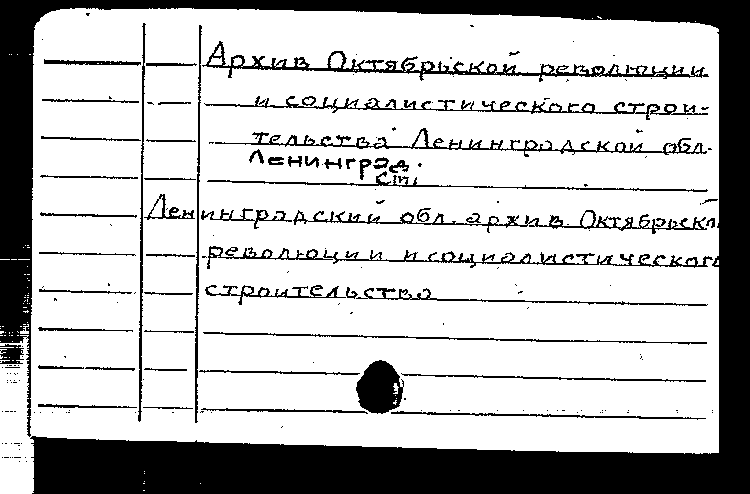 Архив Октябрьской революции
и социалистического строи-
тельства Ленинградской обл.
Ленинград.
Ленинградский обл. архив Октябрьско
революции и социалистического
строительства